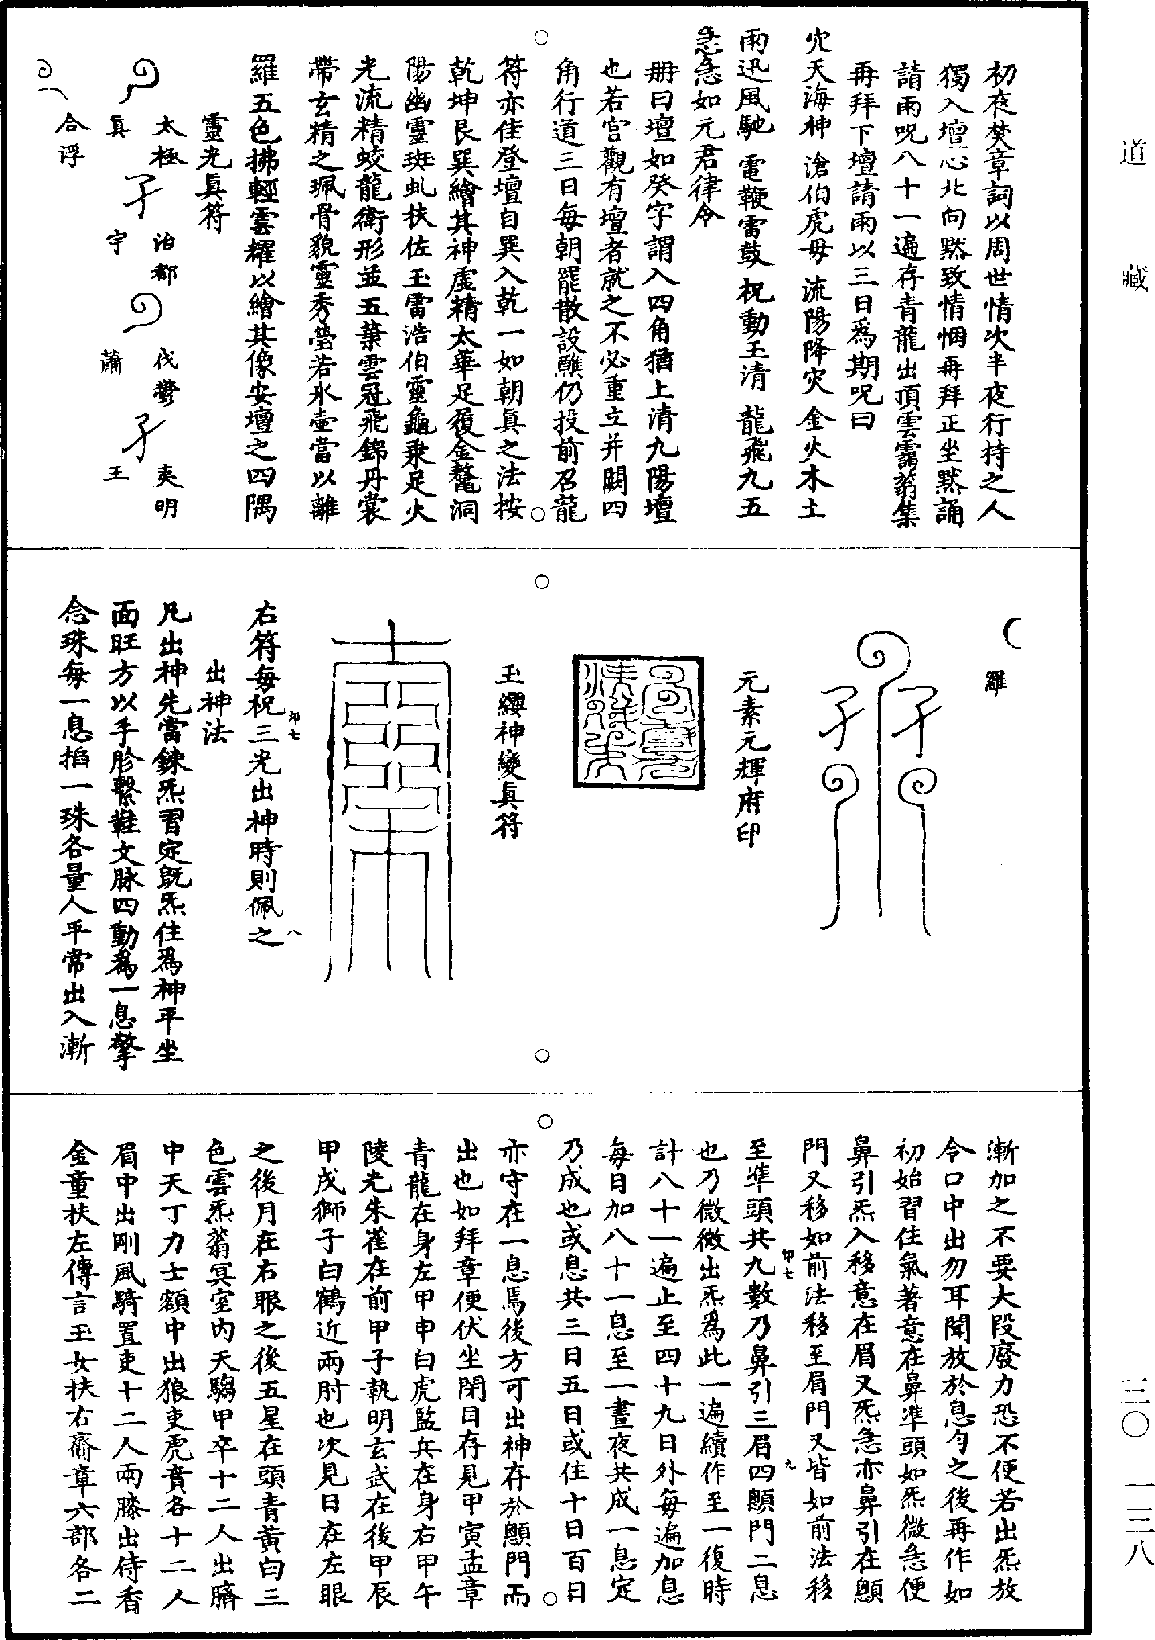 道藏
三〇 一三八
初夜焚章詞以周世情次半夜行持之人
獨入壇心北向黙致情悃再拜正坐黙誦
請雨呪八十一遍存青龍出頂雲靄蓊集
再拜下壇請雨以三日為期呪曰
穴天海神 滄伯虎母 流陽降灾 金火木土
雨迅風馳 電鞭雷鼓 祝動玉清 龍飛九五
急急如元君律令
冊曰壇如癸字謂入四角猶上清九陽壇
也若宮觀有壇者就之不必重立并闢四
角行道三日每朝罷散設醮仍投前召龍
符亦佳登壇自巽入乾一如朝真之法按
乾坤艮巽繪其神虛精太華足履金鼇洞
陽幽靈斑虬扶佐玉雷浩伯靈龜乗足火
光流精蛟龍衛形並五葉雲冠飛錦丹裳
帶玄精之珮骨貌靈秀瑩若氷壷當以離
羅五色拂輕雲耀以繪其像安壇之四隅
靈光真符
太極 治都 伐鬱 夷明
真 宇 蕭 王
合浮
羅
元素元輝府印
玉纓神變真符
右符每祝三光出神時則佩之
印七
八
出神法
凡出神先當鍊炁習定既炁住為神平坐
面旺方以手胗繫難文脉四動為一息擎
念珠每一息掐一珠各量人平常出入漸
漸加之不要大段廢力恐不便若出炁放
令口中出勿耳聞放於息勻之後再作如
初始習住氣著意在鼻準頭如炁微急便
鼻引炁入移意在眉又炁急亦鼻引在顖
門又移如前法移至眉門又皆如前法移
至準頭共九數乃鼻引三眉四顖門二息
印七
九
也乃微微出炁為此一遍續作至一復時
計八十一遍止至四十九日外每遍加息
每日加八十一息至一晝夜共成一息定
乃成也或息共三日五日或住十日百日
亦守在一息焉後方可出神存於顖門而
出也如拜章便伏坐閉目存見甲寅孟章
青龍在身左甲申白虎監兵在身右甲午
陵光朱雀在前甲子執明玄武在後甲辰
甲戌獅子白鶴近兩肘也次見日在左眼
之後月在右眼之後五星在頭青黃白三
色雲炁蓊冥室内天騶甲卒十二人出臍
中天丁力士額中出狼吏虎賁各十二人
眉中出剛風騎置吏十二人兩膝出侍香
金童扶左傳言玉女扶右齎章六部各二